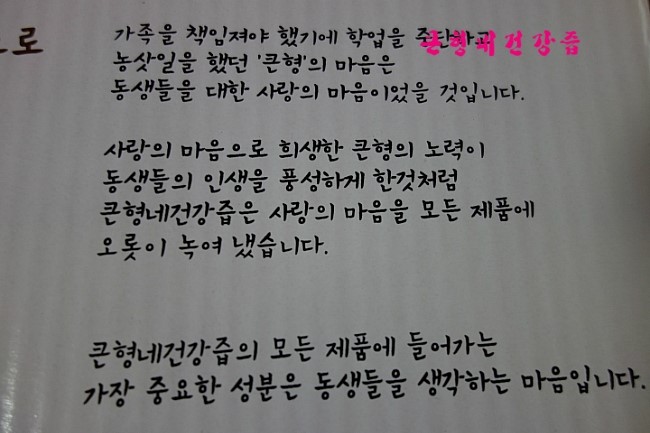 으로
가족을 책임져야 했기에 학업을 중단하고
큰형네건강즙
농삿일을 했던 '큰형'의 마음은
동생들을 대한 사랑의 마음이었을 것입니다.
사랑의 마음으로 희생한 큰형의 노력이
동생들의 인생을 풍성하게 한것처럼
큰형네건강즙은 사랑의 마음을 모든 제품에
오롯이 녹여 냈습니다.
큰형네건강즙의 모든 제품에 들어가는
가장 중요한 성분은 동생들을 생각하는 마음입니다.